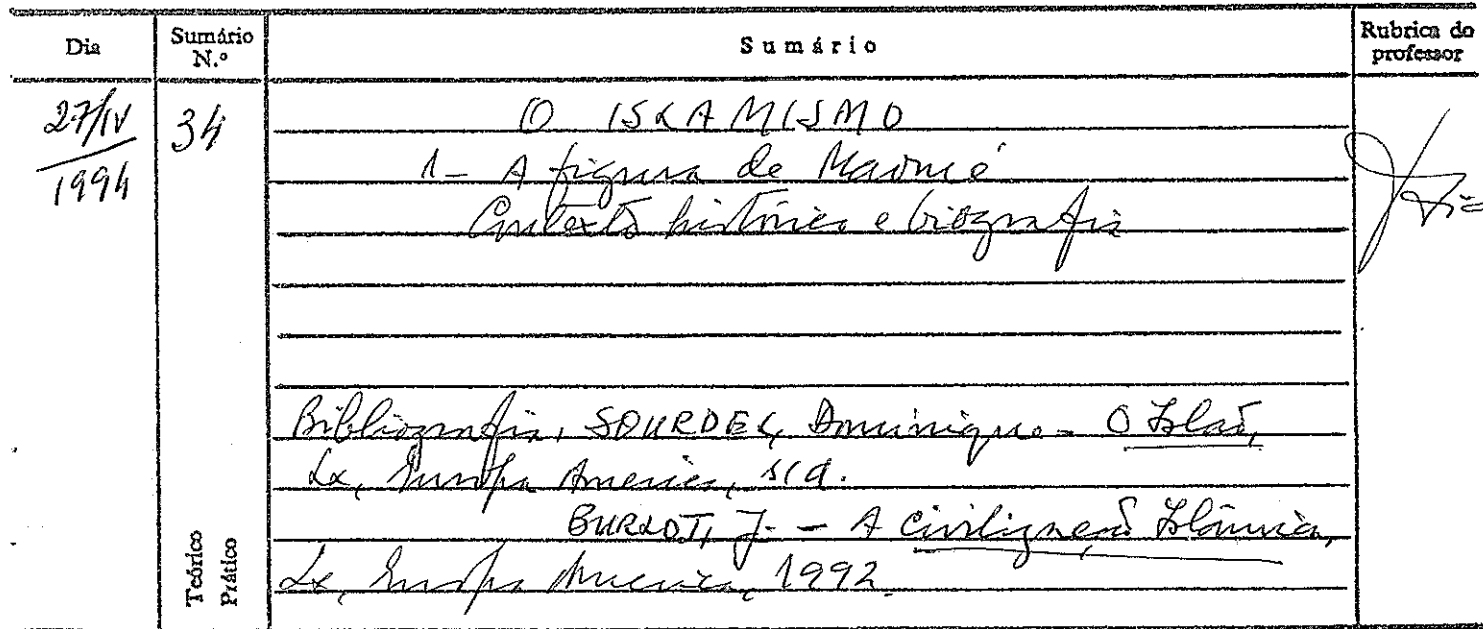 Dia
Sumário N.º
Sumário
Rubrica do professor
27/IV/1994
34
O ISLAMISMO
1- A figura de Maomé
Contexto histórico e biografia
Bibliografia, SOURDEL, Dominique - O Islão,
Lx, Europa América, s/d.
BURLOT, J. - A Civilização Islâmica,
Lx, Europa América, 1992.
Teórico
Prático